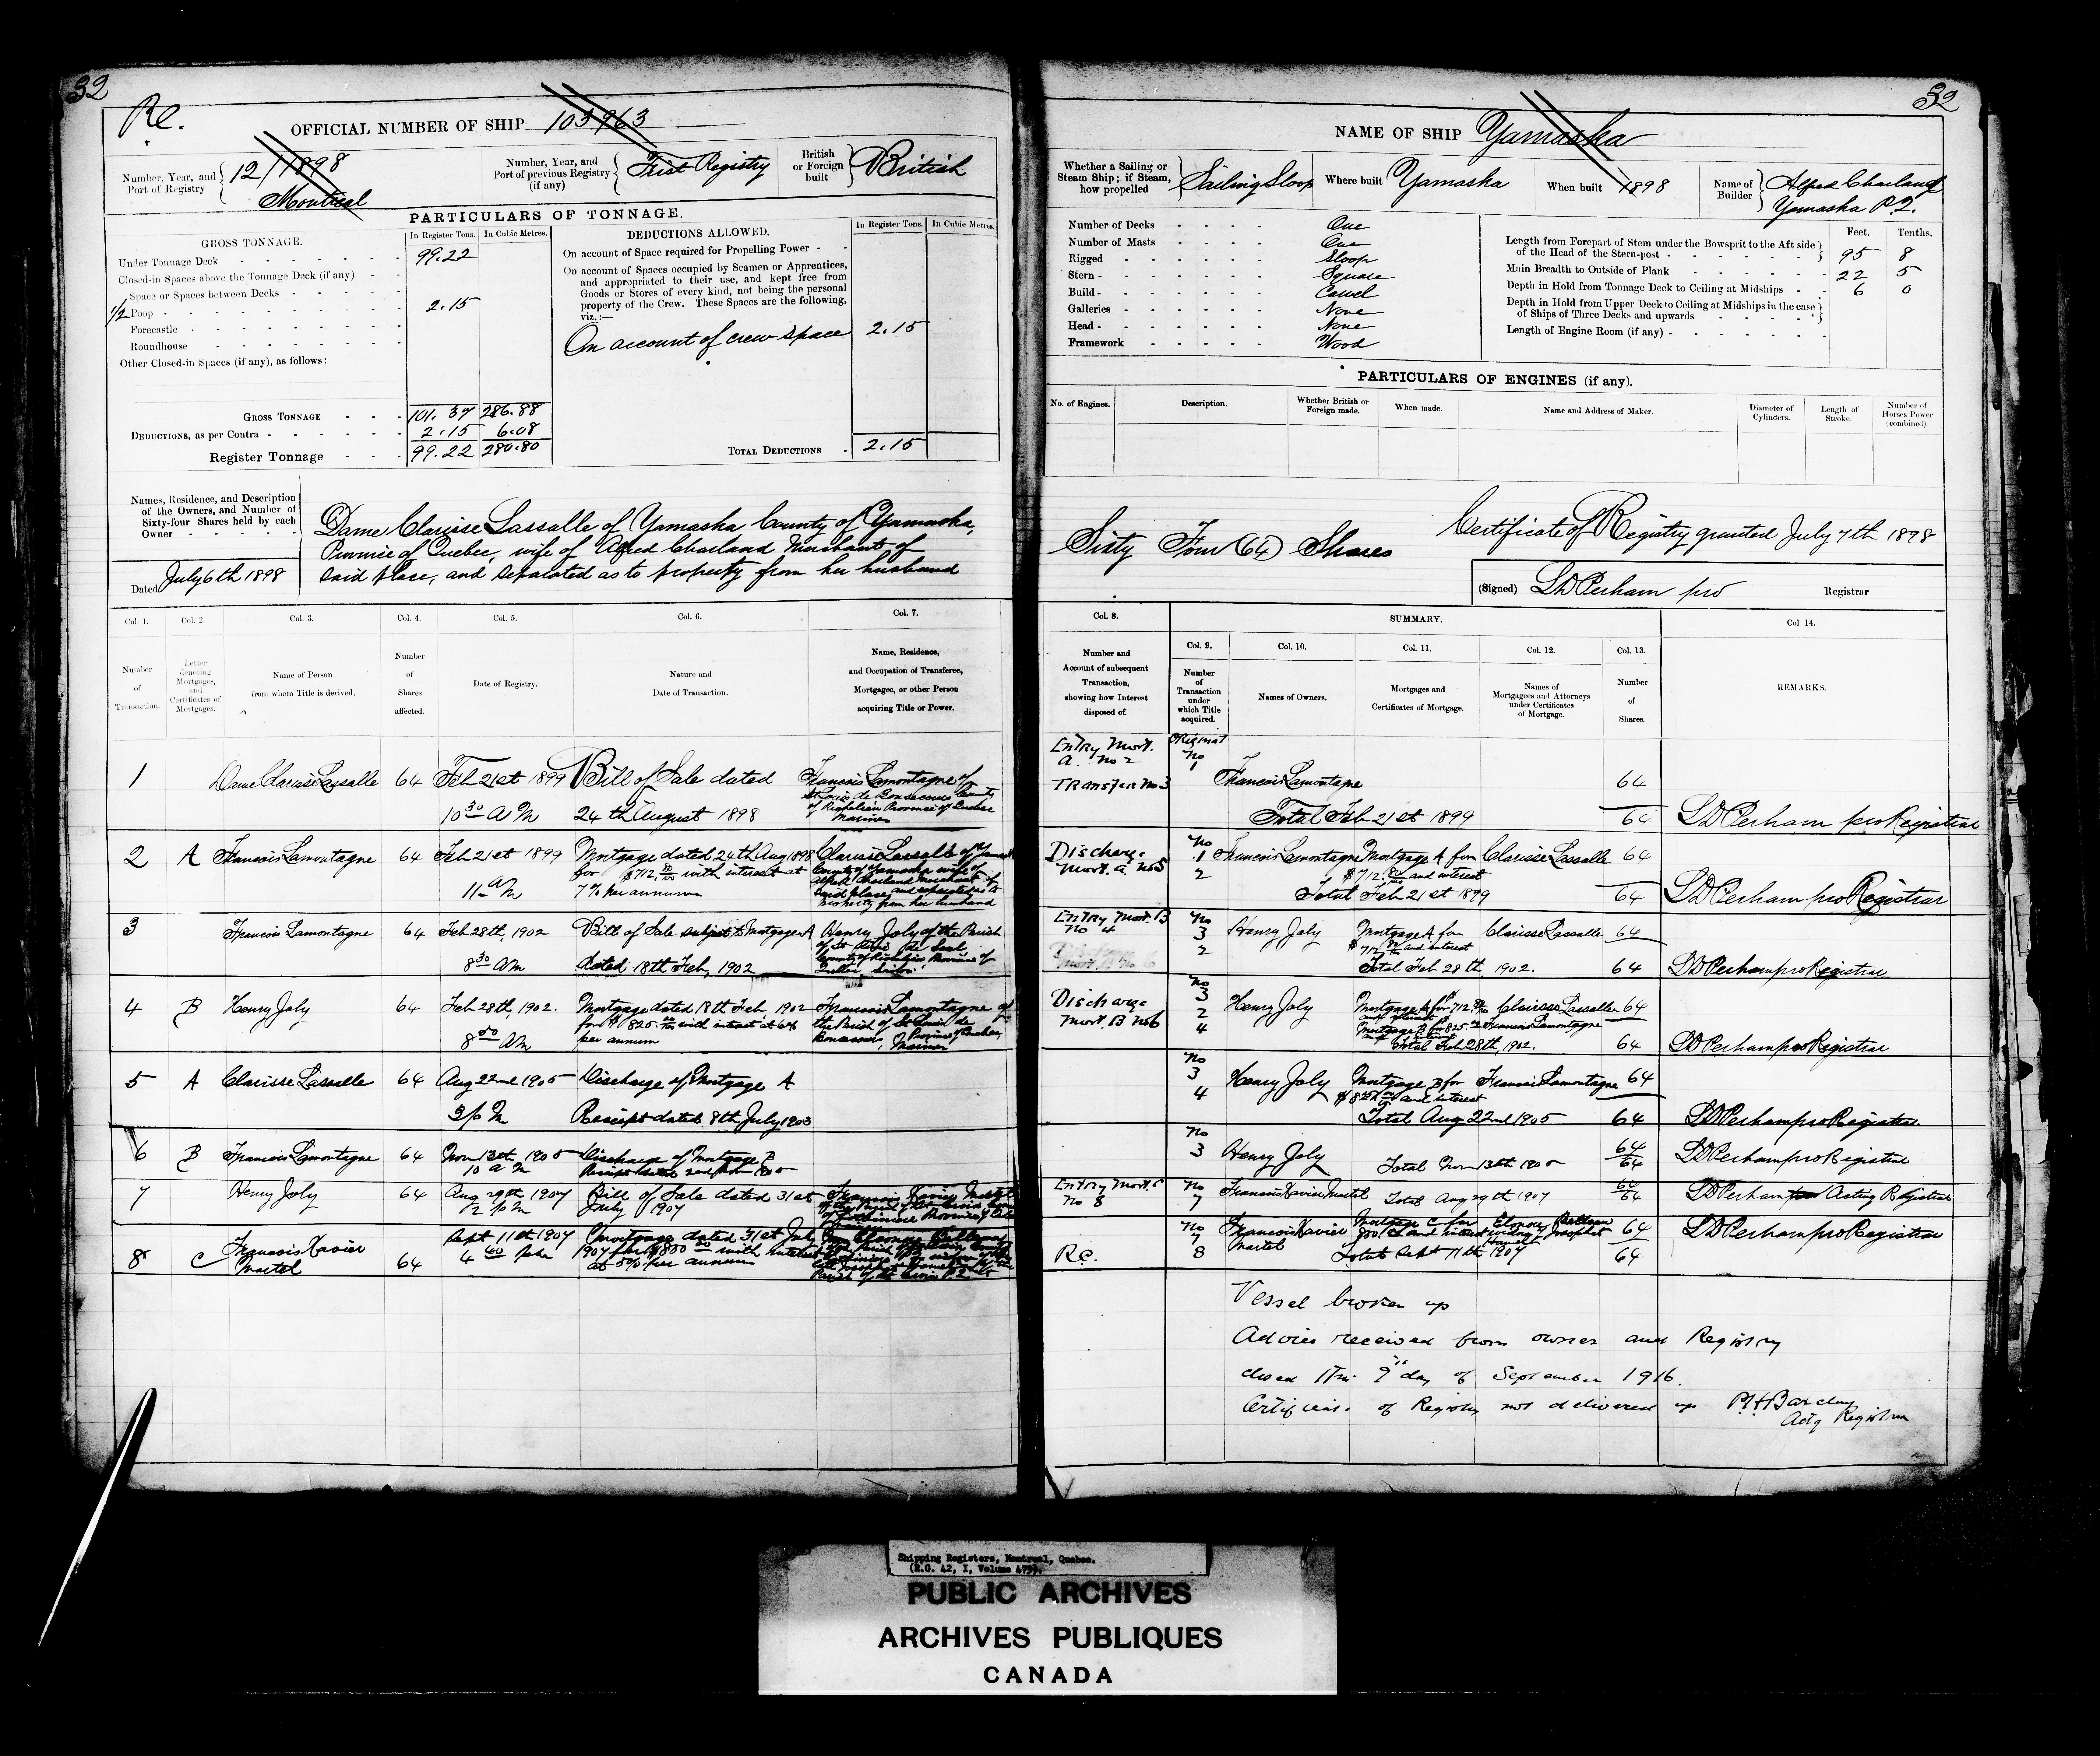 32
Rc.
OFFICIAL NUMBER OF SHIP 103963
Number, Year, and Port of Registry
12/1898
Montreal
Number, Year, and Port of previous Registry (if any)
First Registry
British or Foreign built
British
PARTICULARS OF TONNAGE.
GROSS TONNAGE.
In Register Tons.
In Cubic Metres.
Under Tonnage Deck 99.22
Closed-in Spaces above the Tonnage Deck (if any)
Space or Spaces between Decks
1/2 Poop 2.15
Forecastle
Roundhouse
Other Closed-in Spaces (if any), as follows:
GROSS TONNAGE 101.37 286.88
DEDUCTIONS, as per Contra 2.15 6.08
Register Tonnage 99.22 280.80
DEDUCTIONS ALLOWED.
In Register Tons.
In Cubic Metres.
On account of Space required for Propelling Power
On account of Spaces occupied by Seamen or Apprentices,
and appropriated to their use, and kept free from
Goods or Stores of every kind, not being the personal
property of the Crew. These Spaces are the following,
viz.:—
On account of crew space 2.15
TOTAL DEDUCTIONS 2.15
Names, Residence, and Description
of the Owners, and Number of
Sixty-four Shares held by each
Owner
Dated July 6th 1898
Dame Clarisse Lassalle of Yamaska County of Yamaska,
Province of Quebec, wife of Alfred Charland Merchant of
said place, and separated as to property from her husband
Col. 1.
Number of Transaction.
Col. 2.
Letter denoting Mortgages, and Certificates of Mortgages.
Col. 3.
Name of Person from whom Title is derived.
Col. 4.
Number of Shares affected.
Col. 5.
Date of Registry.
Col. 6.
Nature and Date of Transaction.
Col. 7.
Name, Residence, and Occupation of Transferee, Mortgagee, or other Person acquiring Title or Power.
1 Dame Clarisse Lassalle 64 Feb 21st 1899 Bill of Sale dated Francois Lamontagne of
St Louis de Bonsecours County
of Richelieu Province of Quebec
10 30 AM 24th August 1898 Mariner
2 A Francois Lamontagne 64 Feb 21st 1899 Mortgage dated 24th Aug 1898 Clarisse Lassalle of Yamaska
for $712. with interest at County of Yamaska wife of
Alfred Charland Merchant of
11 AM 7% per annum said place, and separated as to
property from her husband
3 Francois Lamontagne 64 Feb 28th, 1902 Bill of Sale subject to Mortgage A Henry Joly of the Parish
8 30 AM dated 18th Feb, 1902
4 B Henry Joly 64 Feb 28th, 1902. Mortgage dated 18th Feb, 1902 Francois Lamontagne of
for $825. with interest at 6% the Parish of St Louis de
8 50 AM per annum Bonsecours, Province of Quebec, Mariner
5 A Clarisse Lassalle 64 Aug 22nd 1905 Discharge of Mortgage A
3 PM Receipt dated 8th July 1903
6 B Francois Lamontagne 64 Nov 13th 1905 Discharge of Mortgage B
10 AM Receipt dated 2nd 1905
7 Henry Joly 64 Aug 29th 1907 Bill of Sale dated 31st Francois Xavier Martel
2 PM July 1907
8 C Francois Xavier Martel 64 Sept 11th 1907 Mortgage dated 31st July
4 40 PM 1907 for $850 with interest
at 5% per annum
32
NAME OF SHIP Yamaska
Whether a Sailing or Steam Ship; if Steam, how propelled
Sailing Sloop
Where built Yamaska
When built 1898
Name of Builder
Alfred Charland
Yamaska P.Q.
Number of Decks One
Number of Masts One
Rigged Sloop
Stern Square
Build Carvel
Galleries None
Head None
Framework Wood
Feet. Tenths.
Length from Forepart of Stem under the Bowsprit to the Aft side
of the Head of the Stern-post 95 8
Main Breadth to Outside of Plank 22 5
Depth in Hold from Tonnage Deck to Ceiling at Midships 6 0
Depth in Hold from Upper Deck to Ceiling at Midships in the case
of Ships of Three Decks and upwards
Length of Engine Room (if any)
PARTICULARS OF ENGINES (if any).
No. of Engines.
Description.
Whether British or Foreign made.
When made.
Name and Address of Maker.
Diameter of Cylinders.
Length of Stroke.
Number of Horses Power (combined).
Sixty Four (64) Shares
Certificate of Registry granted July 7th 1898
(Signed) LD Perham pro Registrar
Col. 8.
Number and Account of subsequent Transaction, showing how Interest disposed of.
SUMMARY.
Col. 9.
Number of Transaction under which Title acquired.
Col. 10.
Names of Owners.
Col. 11.
Mortgages and Certificates of Mortgage.
Col. 12.
Names of Mortgagees and Attorneys under Certificates of Mortgage.
Col. 13.
Number of Shares.
Col 14.
REMARKS.
Entry Mort. Original
A. No 2 No 1
Transfer No 3 Francois Lamontagne 64
Total Feb 21st 1899 64 LD Perham pro Registrar
Discharge No 1 Francois Lamontagne Mortgage A for Clarisse Lassalle 64
Mort. A No 5 2 $712. and interest
Total Feb 21st 1899 64 LD Perham pro Registrar
Entry Mort. B No 3 Henry Joly Mortgage A for Clarisse Lassalle 64
No 4 2 $712 and interest
Total Feb 28th, 1902. 64 LD Perham pro Registrar
Discharge No 3 Henry Joly Mortgage A for 712. Clarisse Lassalle 64
Mort. B No 6 2 Mortgage B for 825. Francois Lamontagne
4 Total Feb 28th, 1902. 64 LD Perham pro Registrar
No 3 Henry Joly Mortgage B for Francois Lamontagne 64
4 $825 and interest
Total Aug 22nd 1905 64 LD Perham pro Registrar
No 3 Henry Joly Total Nov 13th 1905 64 64 LD Perham pro Registrar
Entry Mort. C No 7 Francois Xavier Martel Total Aug 29th 1907 64 LD Perham Acting Registrar
No 8
No 7 Francois Xavier Martel Mortgage C for 64 LD Perham pro Registrar
Rc. 8 Total Sept 11th 1907 64
Vessel broken up
Advice received from owner and Registry
closed this 9th day of September 1916.
Certificate of Registry not delivered up Barclay
Actg Registrar
Shipping Registers, Montreal, Quebec.
(R.G. 42, I, Volume 479).
PUBLIC ARCHIVES
ARCHIVES PUBLIQUES
CANADA